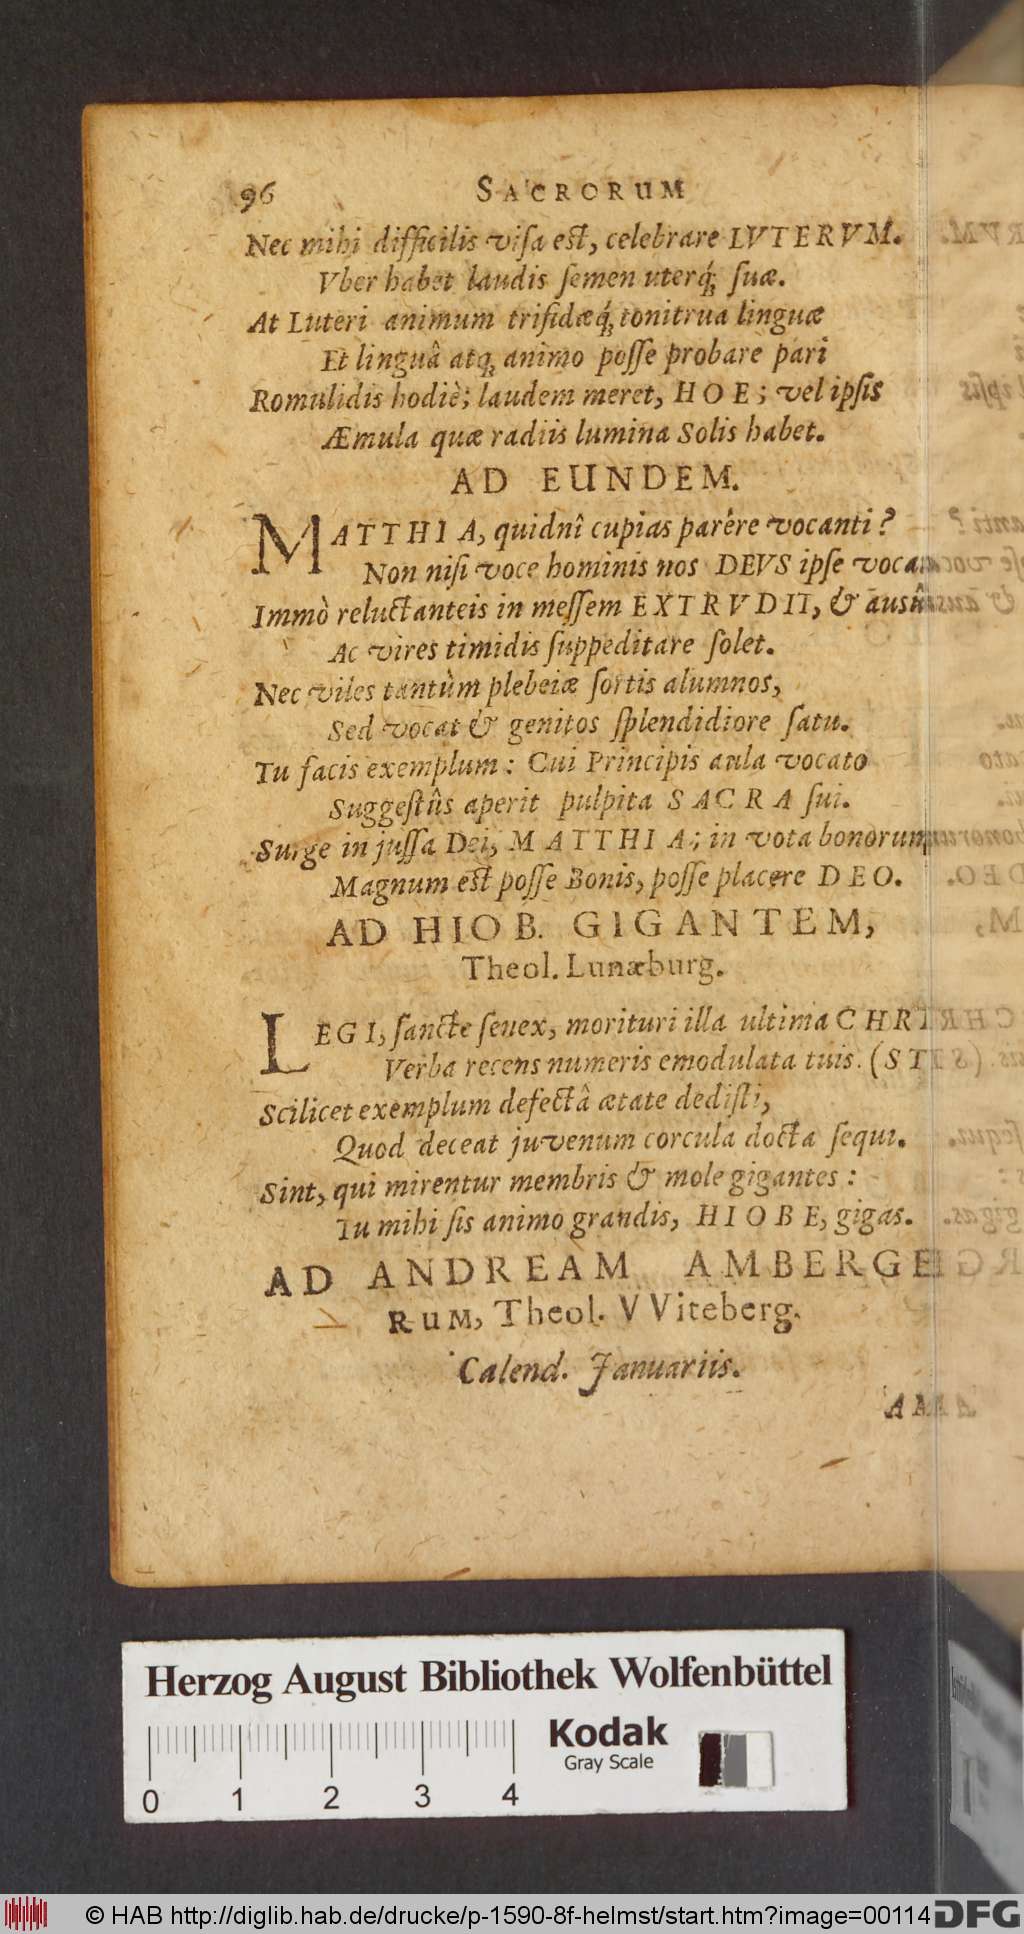 96 SACRORUM
Nec mihi difficilis visa est, celebrare LVTERVM.
Vber habet laudis semen uterq́; suæ.
At Luteri animum trifidæq́; tonitrua linguæ
Et linguâ atq; animo posse probare pari
Romulidis hodiè; laudem meret, HOE; vel ipsis
Æmula quæ radiis lumina Solis habet.
AD EUNDEM.
MATTHIA, quidnî cupias parére vocanti?
Non nisi voce hominis nos DEVS ipse vocat
Immò reluctanteis in messem EXTRVDII, & ausûs
Ac vires timidis suppeditare solet.
Nec viles tantùm plebeiæ sortis alumnos,
Sed vocat & genitos splendidiore satu.
Tu facis exemplum: Cui Principis aula vocato
Suggestûs aperit pulpita SACRA sui.
Surge in jussa Dei, MATTHIA; in vota bonorum
Magnum est posse Bonis, posse placere DEO.
AD HIOB. GIGANTEM,
Theol. Lunæburg.
LEGI, sancte senex, morituri illa ultima CHRI
Verba recens numeris emodulata tuis. (STI
Scilicet exemplum defectâ ætate dedisti,
Quod deceat juvenum corcula docta sequi.
Sint, qui mirentur membris & mole gigantes:
Tu mihi sis animo grandis, HIOBE, gigas.
AD ANDREAM AMBERGE
RUM, Theol. VViteberg.
Calend. Januariis.
AMA
Herzog August Bibliothek Wolfenbüttel
Kodak
Gray Scale
0 1 2 3 4
© HAB http://diglib.hab.de/drucke/p-1590-8f-helmst/start.htm?image=00114 DFG